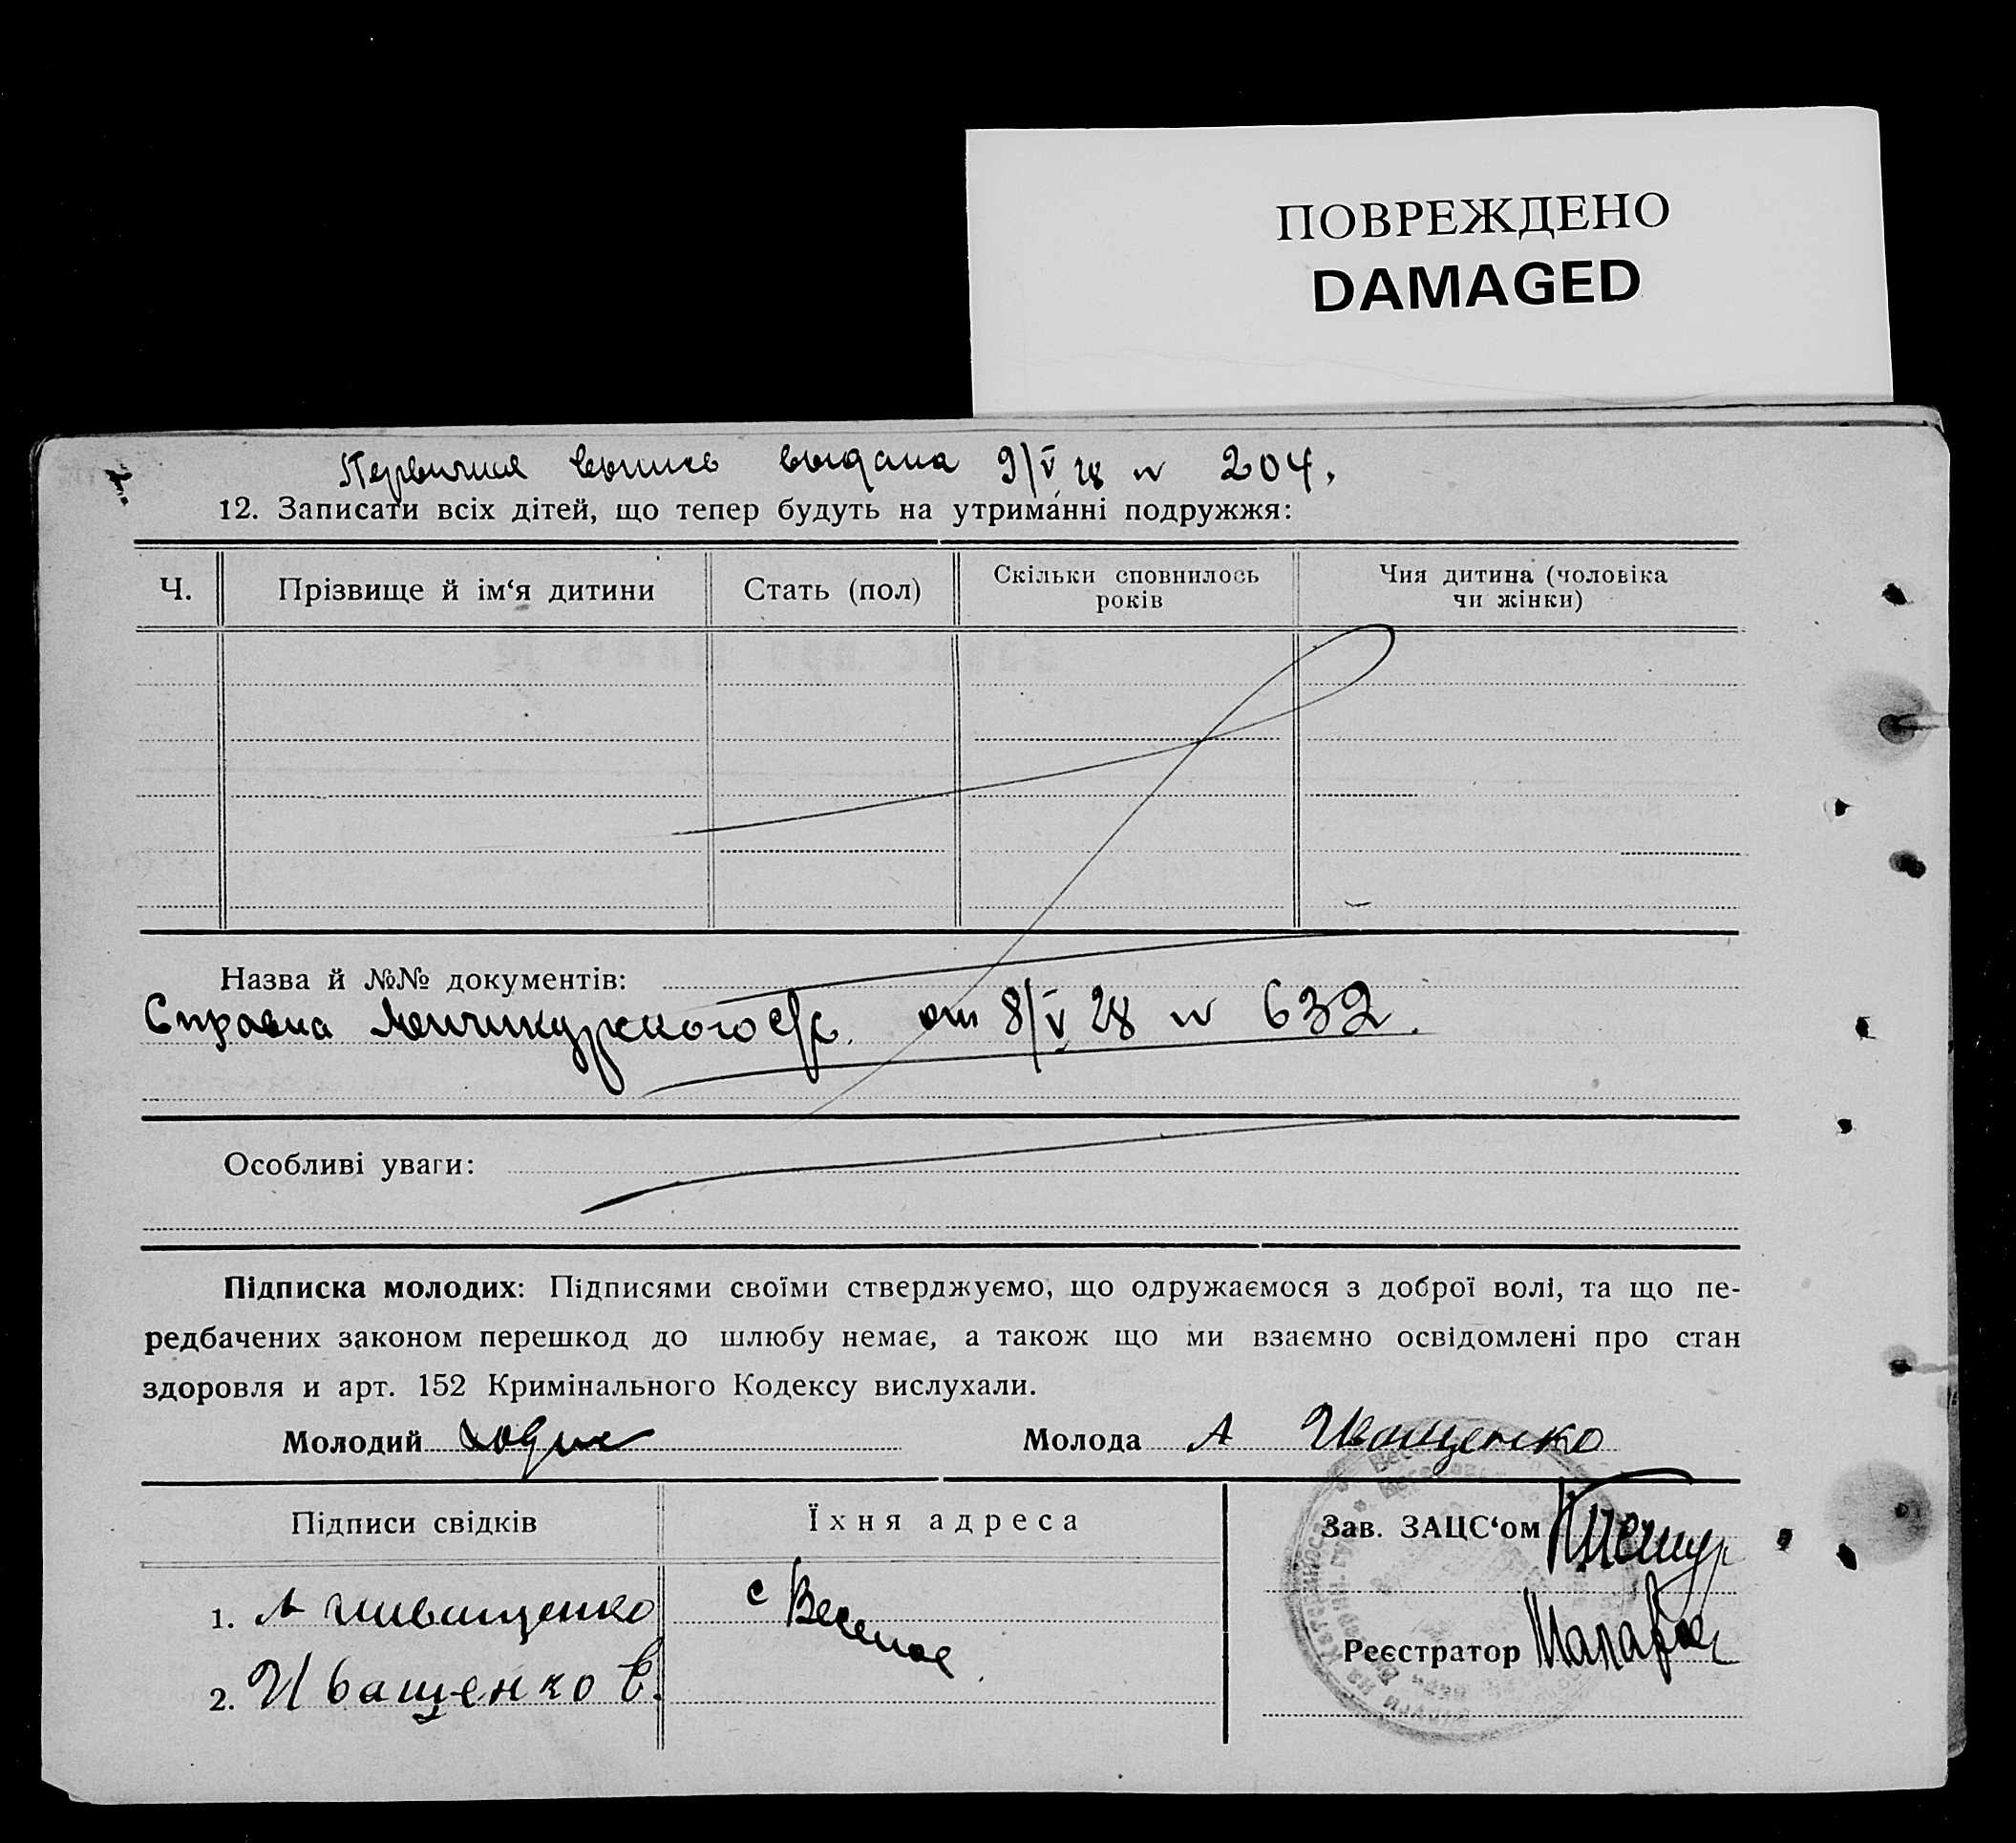 ПОВРЕЖДЕНО
DAMAGED
выдана 9/V 28 № 204.
12. Записати всіх дітей, що тепер будуть на утриманні подружжя:
Ч. Прізвище й ім‘я дитини Стать (пол) Скільки сповнилось років Чия дитина (чоловіка чи жінки)
Назва й №№ документів:
Справка Менчикурского с/р. от 8/V 28 № 632.
Особливі уваги:
Підписка молодих: Підписями своїми стверджуємо, що одружаємося з доброї волі, та що пе-
редбачених законом перешкод до шлюбу немає, а також що ми взаємно освідомлені про стан
здоровля и арт. 152 Кримінального Кодексу вислухали.
Молодий Молода А Иващенко
Підписи свідків Їхня адреса Зав. ЗАЦС‘ом
1. А Иващенко с Веселое
Реєстратор
2. Иващенко В.